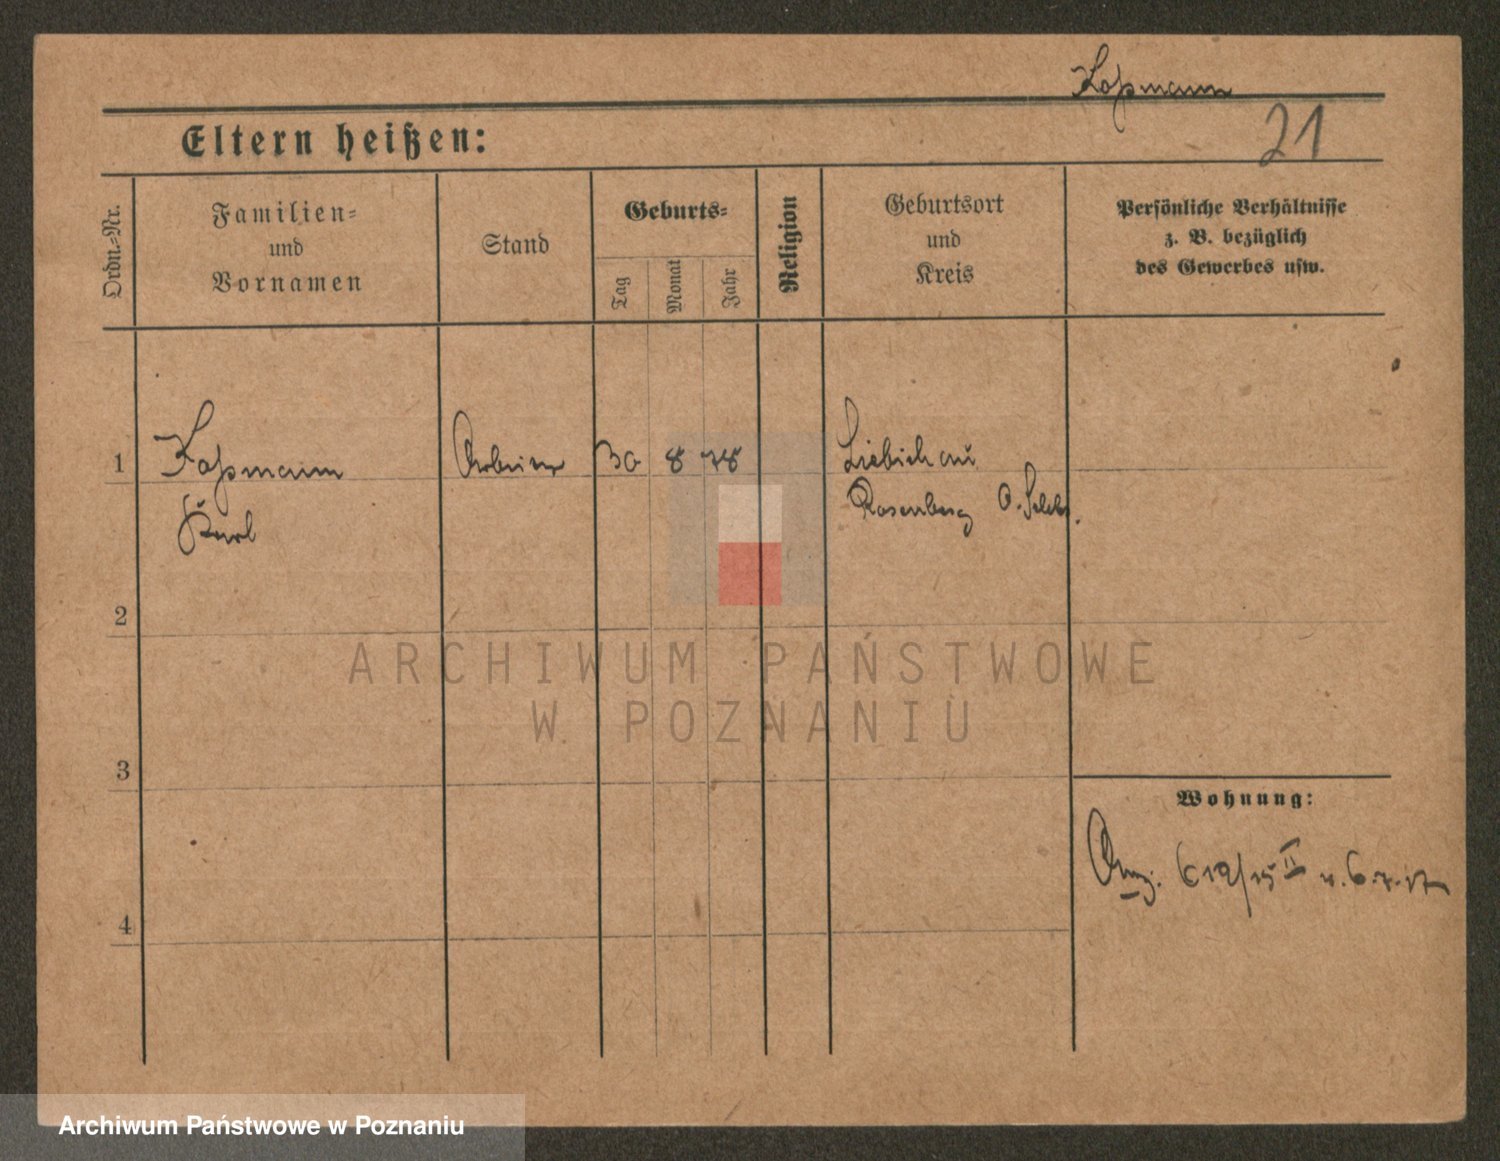 Koßmann
21
Eltern heißen:
Ordn.=Nr.
Familien=
und
Vornamen
Stand
Geburts=
Tag
Monat
Jahr
Religion
Geburtsort
und
Kreis
Persönliche Verhältnisse
z. B. bezüglich
des Gewerbes usw.
1
Koßmann
Karl
Arbeiter
30
8
78
Rosenberg O. Schls.
2
3
4
Wohnung:
6.7.17
ARCHIWUM PAŃSTWOWE
W POZNANIU
Archiwum Państwowe w Poznaniu